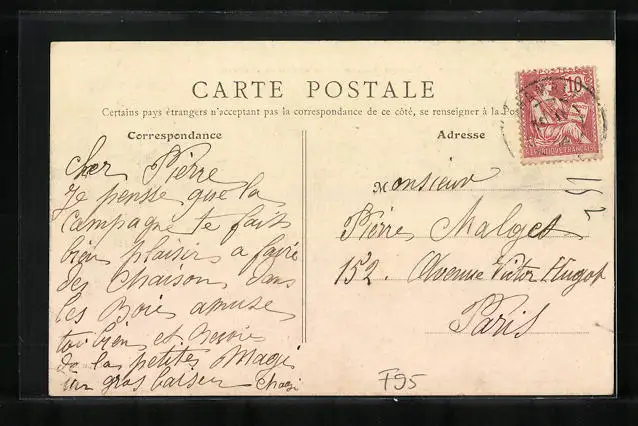 CARTE POSTALE
Certains pays étrangers n'acceptent pas la correspondance de ce côté, se renseigner à la Pos
Correspondance
Adresse
10
POSTES
RÉPUBLIQUE FRANÇAISE
Cher Pierre
Je pensse que la
campagne te fait
bien plaisir a faire
des Chaison dans
les Bois amuse
toi bien et Recois
de la petites Magi
un gros baiser Magi
Monsieur
Pierre Malget
152. Avenue Victor Hugot
Paris
F95